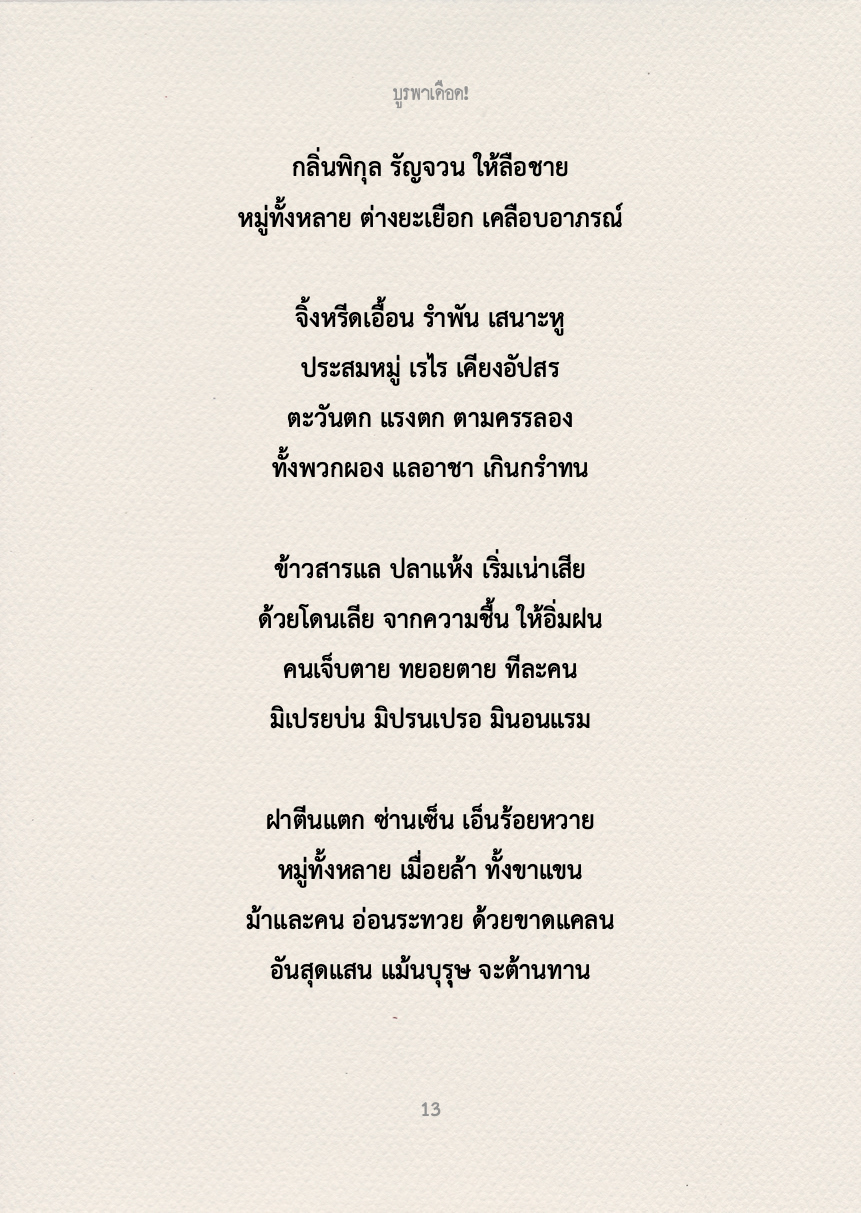 บูรพาเดือด!
กลิ่นพิกุล รัญจวน ให้ลือชาย
หมู่ทั้งหลาย ต่างยะเยือก เคลือบอาภรณ์
จิ้งหรีดเอื้อน รำพัน เสนาะหู
ประสมหมู่ เรไร เคียงอัปสร
ตะวันตก แรงตก ตามครรลอง
ทั้งพวกผอง แลอาชา เกินกรำทน
ข้าวสารแล ปลาแห้ง เริ่มเน่าเสีย
ด้วยโดนเลีย จากความชื้น ให้อิ่มฝน
คนเจ็บตาย ทยอยตาย ทีละคน
มิเปรยบ่น มิปรนเปรอ มินอนแรม
ฝาตีนแตก ซ่านเซ็น เอ็นร้อยหวาย
หมู่ทั้งหลาย เมื่อยล้า ทั้งขาแขน
ม้าและคน อ่อนระทวย ด้วยขาดแคลน
อันสุดแสน แม้นบุรุษ จะต้านทาน
13